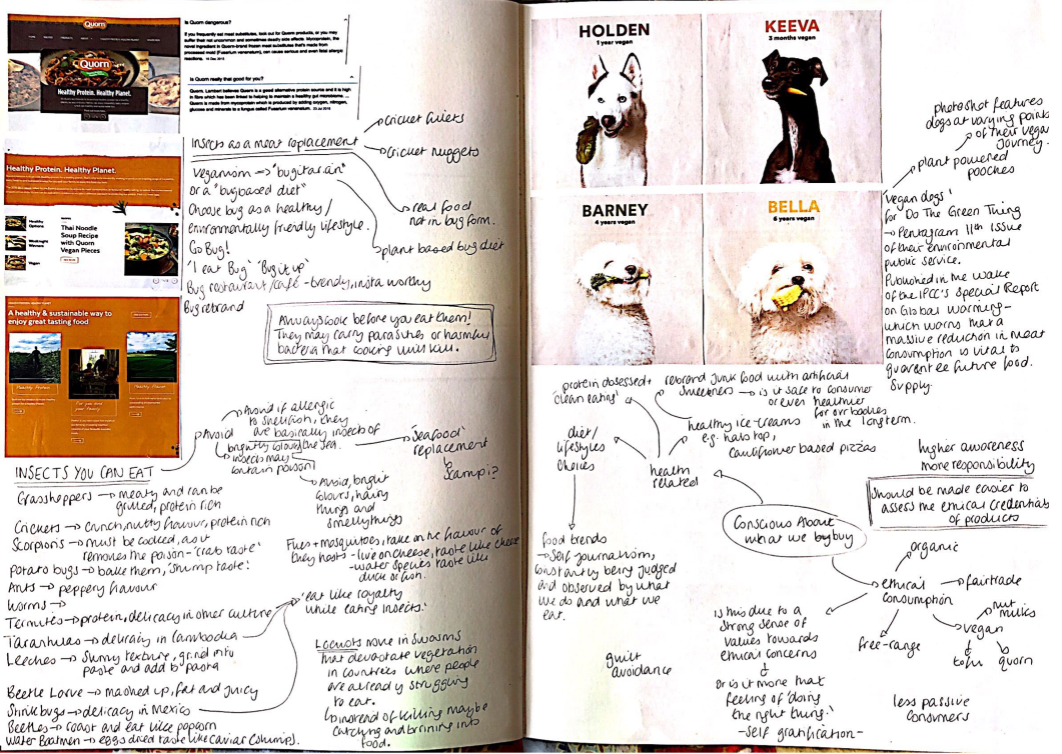 Quorn
Quorn
Healthy Protein. Healthy Planet.
Is Quorn dangerous?
If you frequently eat meat substitutes, look out for Quorn products, or you may
suffer their not uncommon and sometimes deadly side effects. Mycoprotein, the
novel ingredient in Quorn-brand frozen meat substitutes that's made from
processed mold (Fusarium venenatum), can cause serious and even fatal allergic
reactions.
Is Quorn really that good for you?
Quorn. Lambert believes Quorn is a good alternative protein source and it is high
in fibre which has been linked to helping to maintain a healthy gut microbiome. ...
Quorn is made from mycoprotein which is produced by adding oxygen, nitrogen,
glucose and minerals to a fungus called Fusarium venenatum.
Healthy Protein. Healthy Planet.
Healthy
Options
Meatnight
Winners
Vegan
Thai Noodle
Soup Recipe
with Quorn
Vegan Pieces
A healthy & sustainable way to
enjoy great tasting food
Healthy Protein
Healthy Planet
Insects as a meat replacement
cricket fillets
cricket nuggets
Veganism → "bugitarian"
or a "bug based diet"
Choose bug as a healthy/
environmentally friendly lifestyle.
Go Bug!
"I eat Bug" 'Bug it up'
Bug restaurant/café - trendy, insta worthy
Bug rebrand
real food
not in bug form.
plant based bug diet
Always cook before you eat them!
They may carry parasites or harmful
bacteria that cooking will kill.
Avoid
Avoid if allergic
to shellfish, they
are basically insects of
the sea.
brightly coloured
insects may
contain poison
Avoid, bright
colours, hairy
things and
smelly things
'Seafood'
replacement
Scampi?
INSECTS YOU CAN EAT
Grasshoppers → meaty and can be
grilled, protein rich
Crickets → crunch, nutty flavour, protein rich
Scorpions → must be cooked, as it
removes the poison - 'crab taste'
Potato bugs → bake them, 'shrimp taste'
Ants → peppery flavour
Worms →
Termites → protein, delicacy in other culture
Tarantulas → delicacy in Cambodia
Leeches → slimy texture, grind into
paste and add to pasta
Beetle Larve → mashed up, fat and juicy
Stink bugs → delicacy in Mexico
Beetles → roast and eat like popcorn
Water Boatmen → eggs dried taste like caviar (shrimps).
Flies + mosquitoes, take on the flavour of
they hosts - live on cheese, taste like cheese
- water species taste like
duck or fish.
'eat like royalty
while eating insects.'
Locusts move in swarms
that devastate vegetation
in countries where people
are already struggling
to eat.
instead of killing maybe
catching and brining into
food.
HOLDEN
1 year vegan
KEEVA
3 months vegan
BARNEY
4 years vegan
BELLA
6 years vegan
photoshot features
dogs at varying points
of their vegan
journey.
plant powered
pooches
'Vegan dogs'
for Do The Green Thing
→ Pentagram 11th issue
of their environmental
public service.
Published in the wake
of the IPCC's Special Report
on Global Warming -
which warns that a
massive reduction in meat
consumption is vital to
guarantee future food.
supply.
protein obsessed +
'clean eating'
rebrand junk food with artificial
sweeteners → is it safe to consumer
or even healthier
for our bodies
in the long term.
healthy ice-creams
e.g. halo top,
cauliflower based pizzas
diet/
lifestyles
choices
health
related
higher awareness
more responsibility
Should be made easier to
assess the ethical credentials
of products
Conscious About
what we by buy
food trends
→ self journalism,
constantly being judged
and observed by what
we do and what we
eat.
organic
ethical
consumption
fairtrade
nut
milks
vegan
tofu
quorn
free-range
Is this due to a
strong sense of
values towards
ethical concerns
or is it more that
feeling of 'doing
the right thing.'
- self gratification -
guilt
avoidance
less passive
consumers